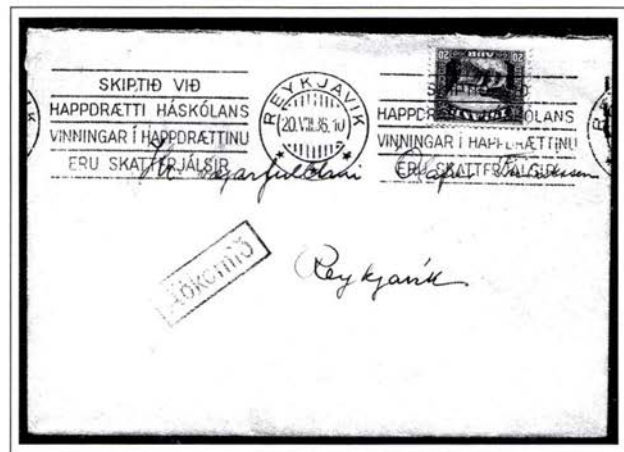 SKIPTIÐ VIÐ
HAPPDRÆTTI HÁSKÓLANS
VINNINGAR Í HAPPDRÆTTINU
ERU SKATTFRJÁLSIR
REYKJAVIK
20.VIII.36.10
20 20
HAPPDRÆTTI HÁSKÓLANS
VINNINGAR Í HAPPDRÆTTINU
ERU SKATTFRJÁLSIR
Hr
Reykjavík
Aðkomið